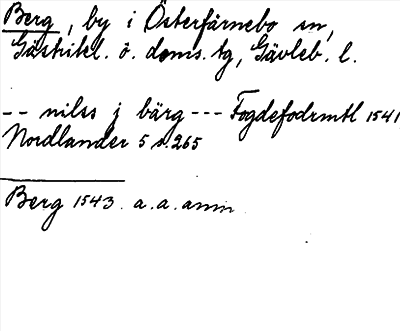 Berg, by i Österfärnebo sn,
Gästrikl. ö. doms. tg, Gävleb. l.
-- nilss j bärg --- Fogdefodrmtl 1541
Nordlander 5 s. 265
Berg 1543 a. a. anm